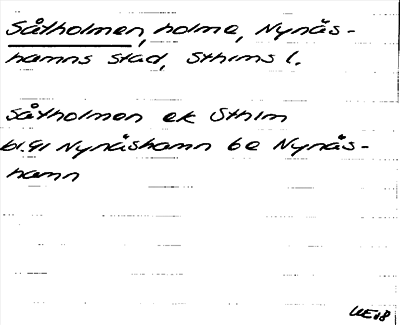 Såtholmen, holme, Nynäs-
hamns stad, Sthlms l.
Såtholmen ek Sthlm
bl.91 Nynäshamn 6e Nynäs-
hamn